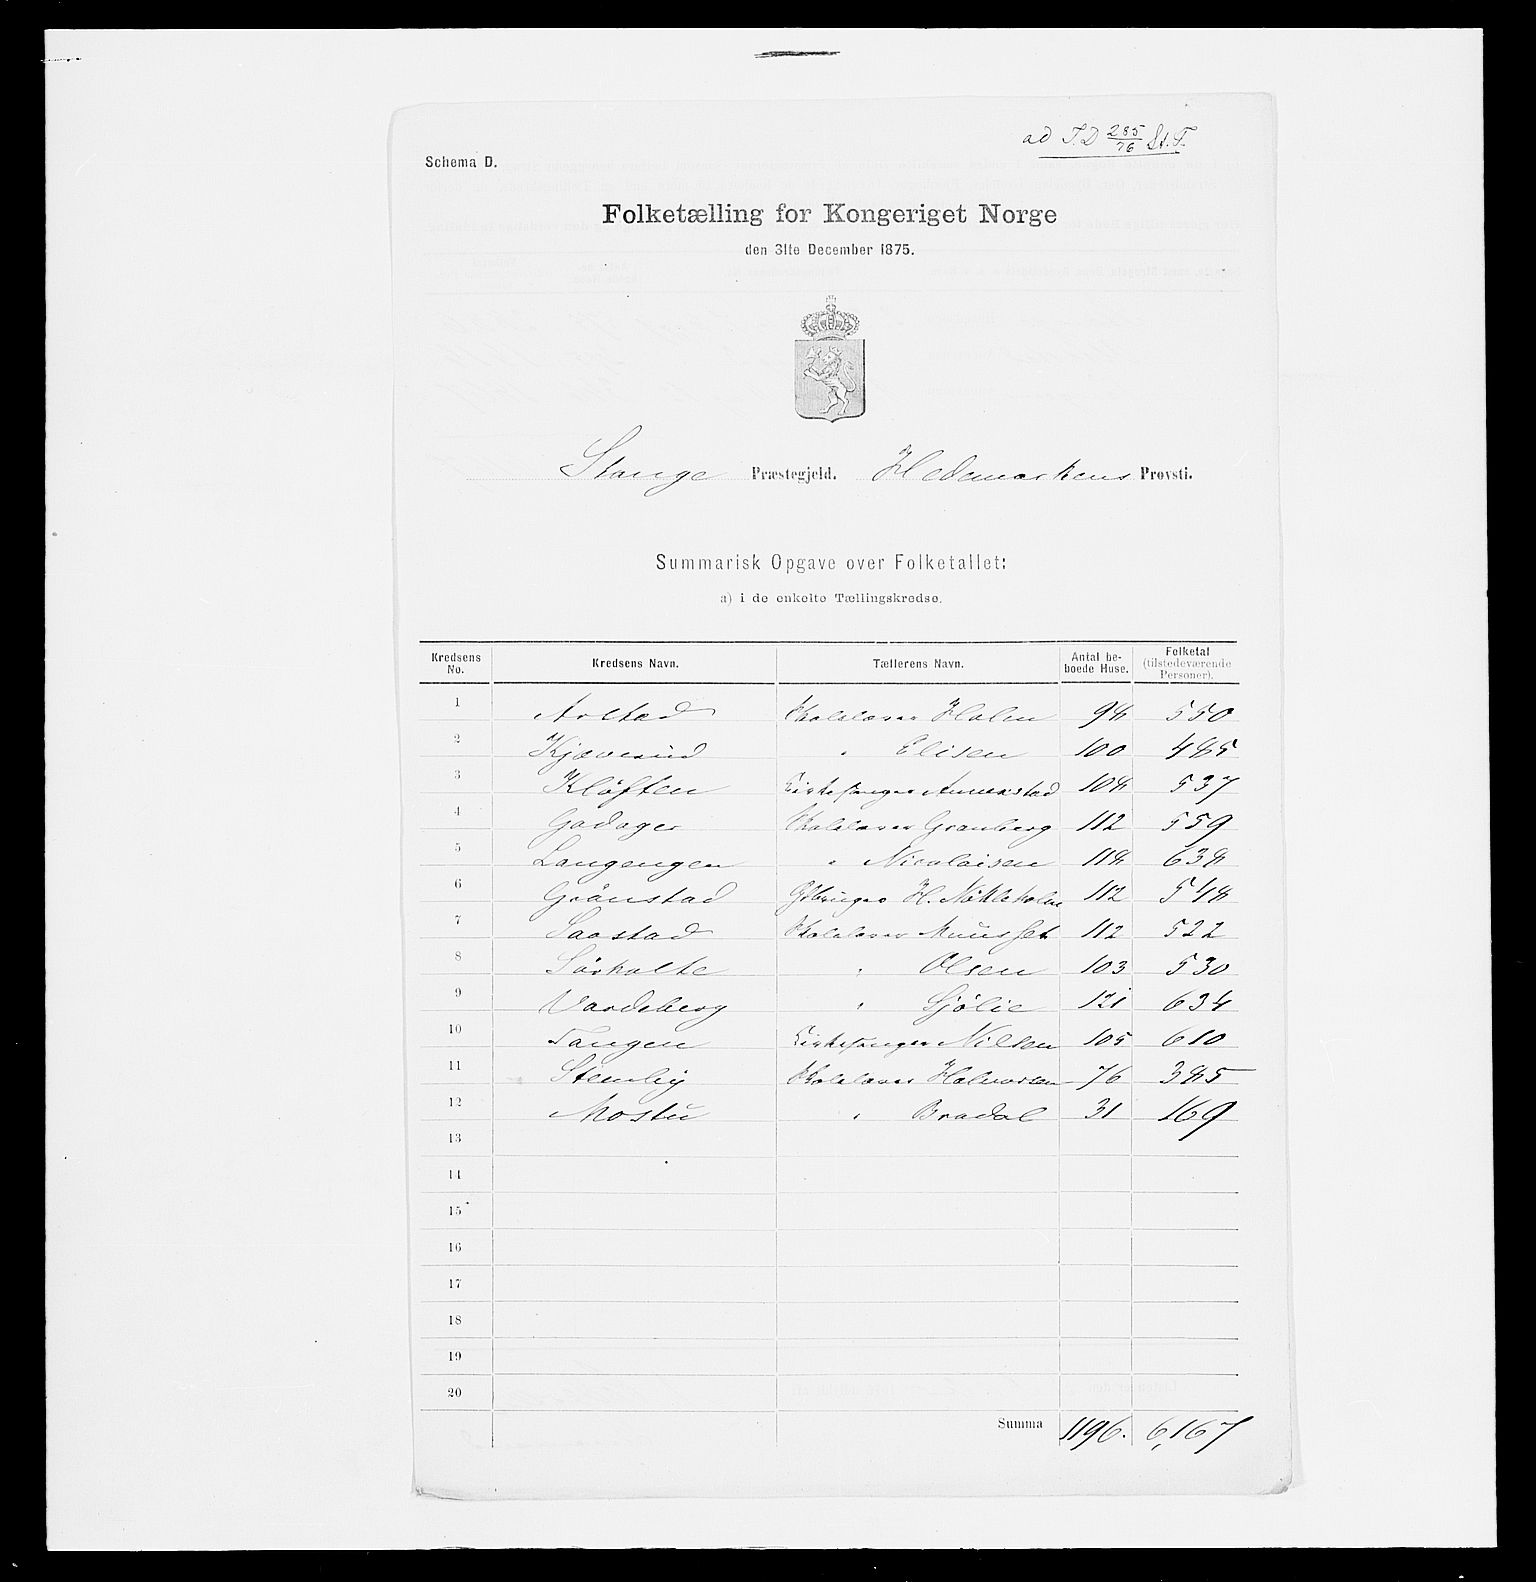 ad T.D 285/76 St. T.
Schema D.
Folketælling for Kongeriget Norge
den 31te December 1875.
Stange Præstegjeld. Hedemarkens Provsti.
Summarisk Opgave over Folketallet:
a) i de enkelte Tællingskredse.
Kredsens No. Kredsens Navn. Tællerens Navn. Antal beboede Huse. Folketal (tilstedeværende Personer).
1 Arstad Skolelærer Holm 98 550
2 Kjæverud " Elisen 100 485
3 Kløften Kirkesanger Annexstad 108 537
4 Godager Skolelærer Granberg 112 559
5 Langengen " Nicolaisen 118 638
6 Grønstad Gdbruger H. Mekleholm 112 548
7 Saastad Skolelærer 112 522
8 Sørholte " Olsen 103 530
9 Vardeberg " Sjølie 121 634
10 Tangen Kirkesanger Nilsen 105 610
11 Stenby Skolelærer Halvorsen 76 385
12 Mostu " Bradal 31 169
13
14
15
16
17
18
19
20
Summa 1196. 6,167